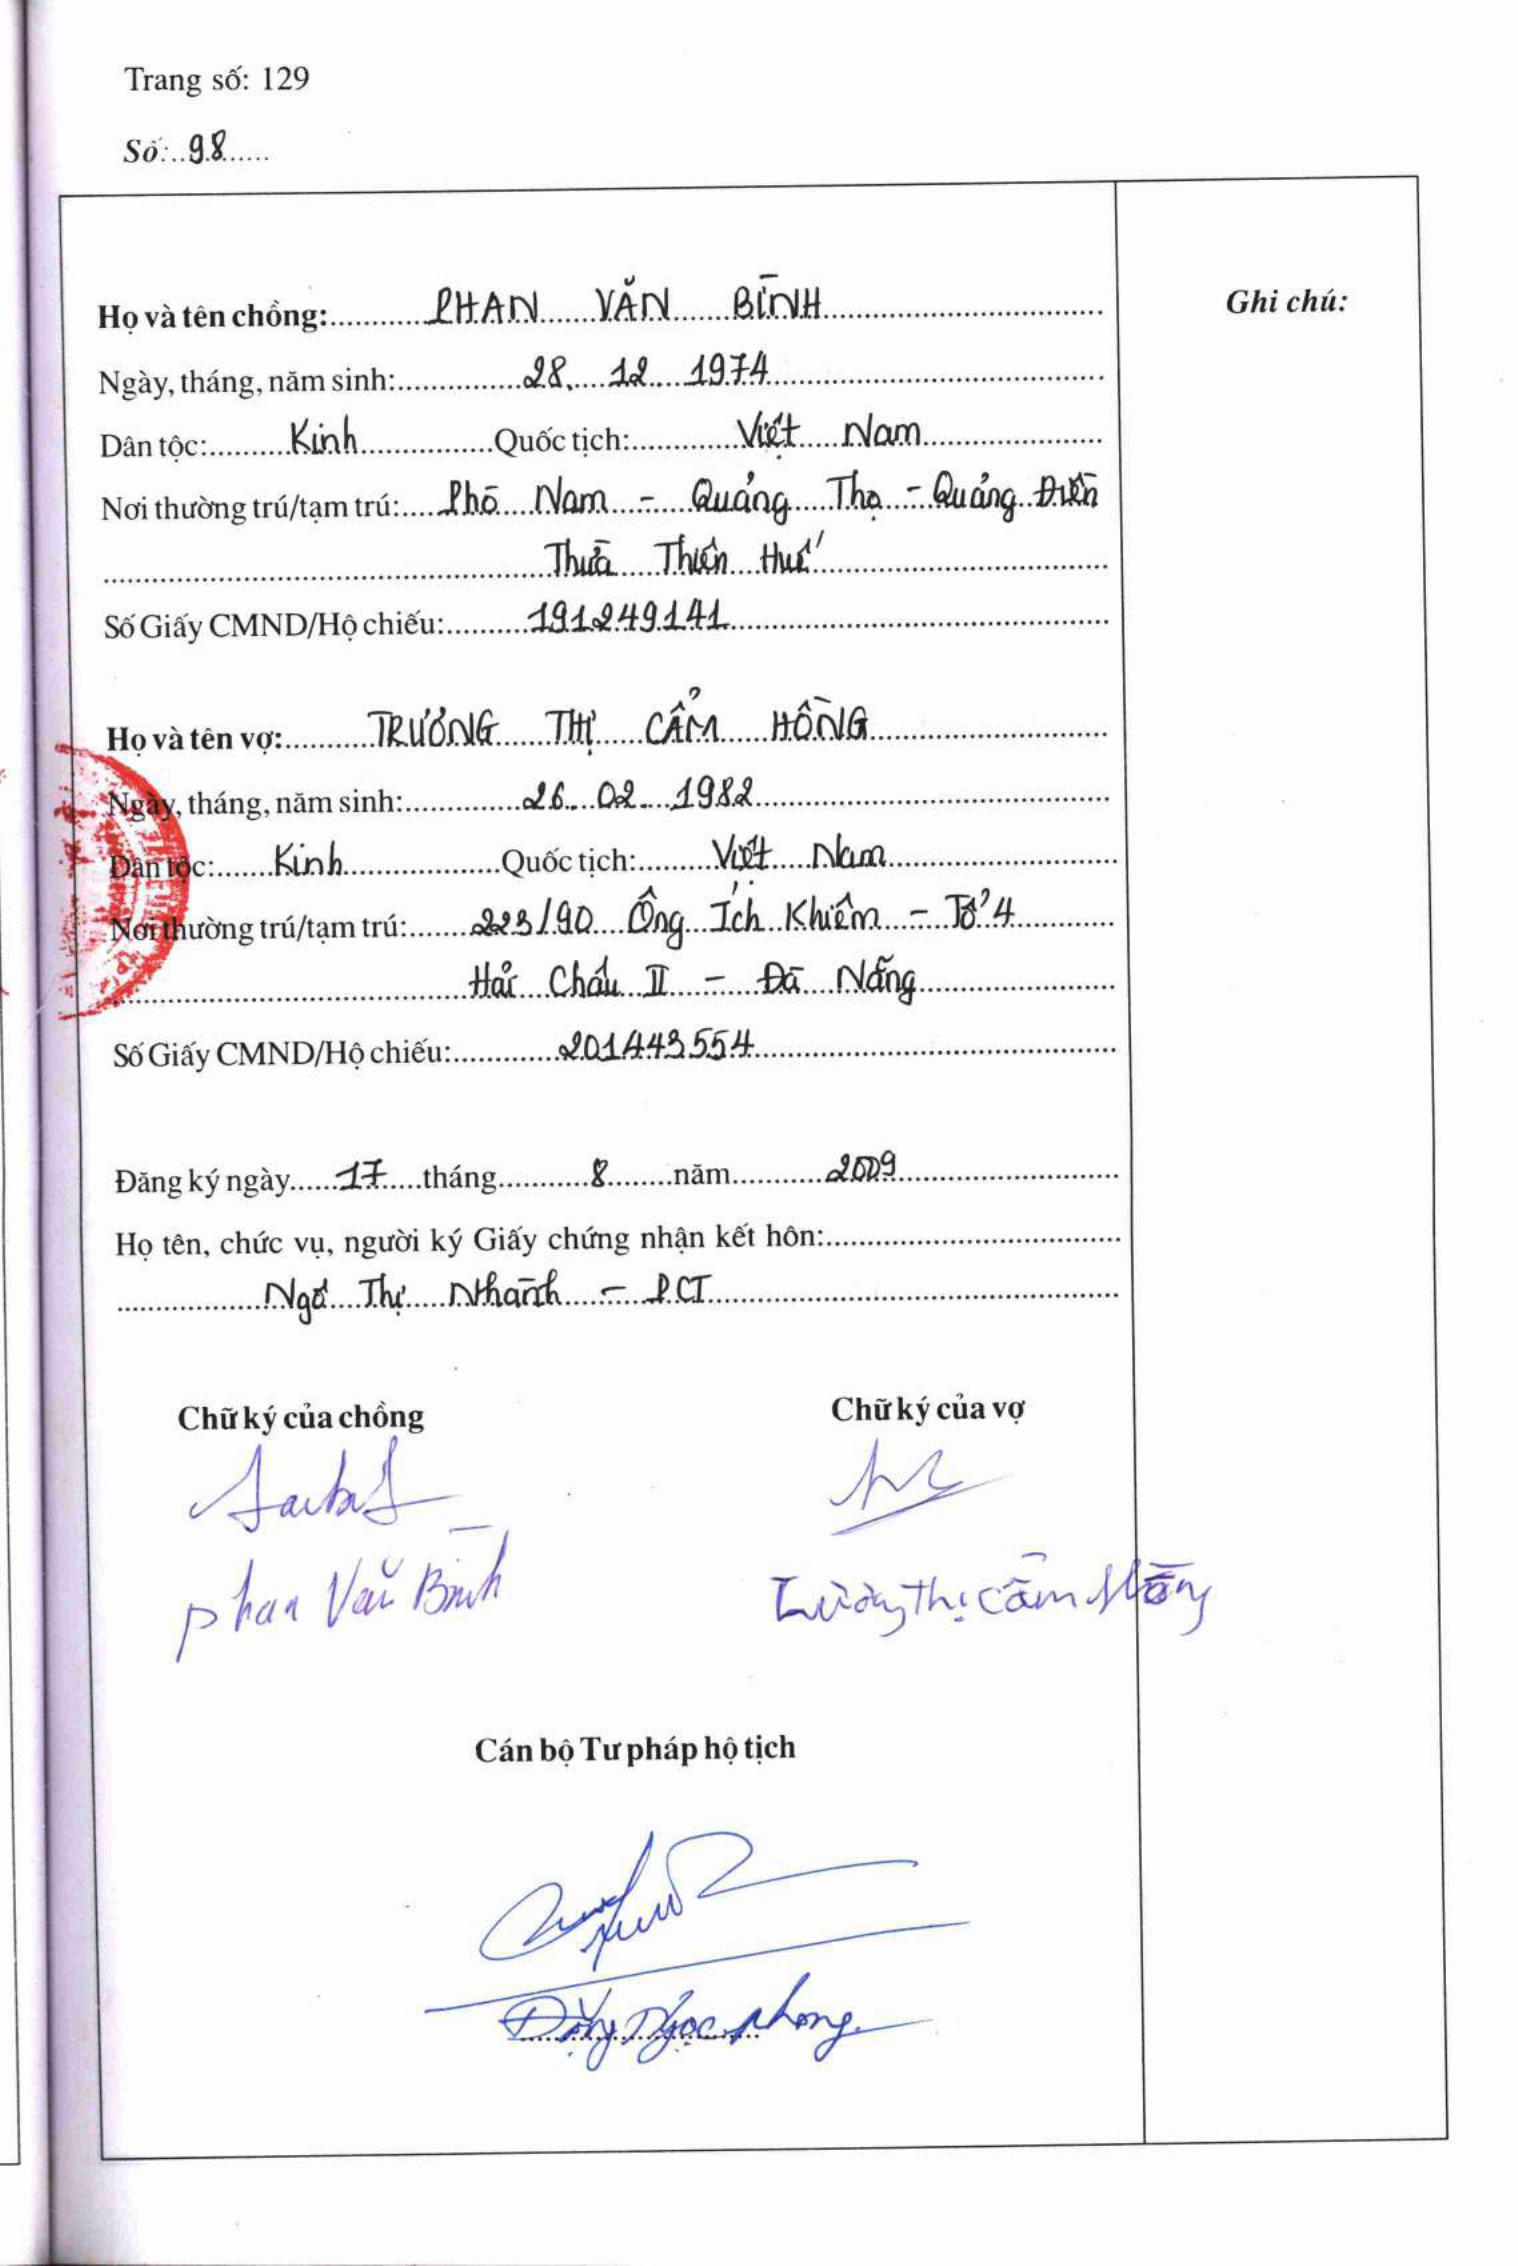 Trang số: 129
Số: 98
Họ và tên chồng: PHAN VĂN BÌNH
Ghi chú:
Ngày, tháng, năm sinh: 28 12 1974
Dân tộc: Kinh Quốc tịch: Việt Nam
Nơi thường trú/tạm trú: Phò Nam - Quảng Thọ - Quảng Điền
Thừa Thiên Huế
Số Giấy CMND/Hộ chiếu: 191249141
Họ và tên vợ: TRƯƠNG THỊ CẨM HỒNG
Ngày, tháng, năm sinh: 26 02 1982
Dân tộc: Kinh Quốc tịch: Việt Nam
Nơi thường trú/tạm trú: 223/90 Ông Ích Khiêm - Tổ 4
Hải Châu II - Đà Nẵng
Số Giấy CMND/Hộ chiếu: 201443554
Đăng ký ngày 17 tháng 8 năm 2009
Họ tên, chức vụ, người ký Giấy chứng nhận kết hôn:
Ngô Thị Nhành - PCT
Chữ ký của chồng Chữ ký của vợ
Phan Văn Bình
Trương Thị Cẩm Hồng
Cán bộ Tư pháp hộ tịch
Đặng Ngọc Phong